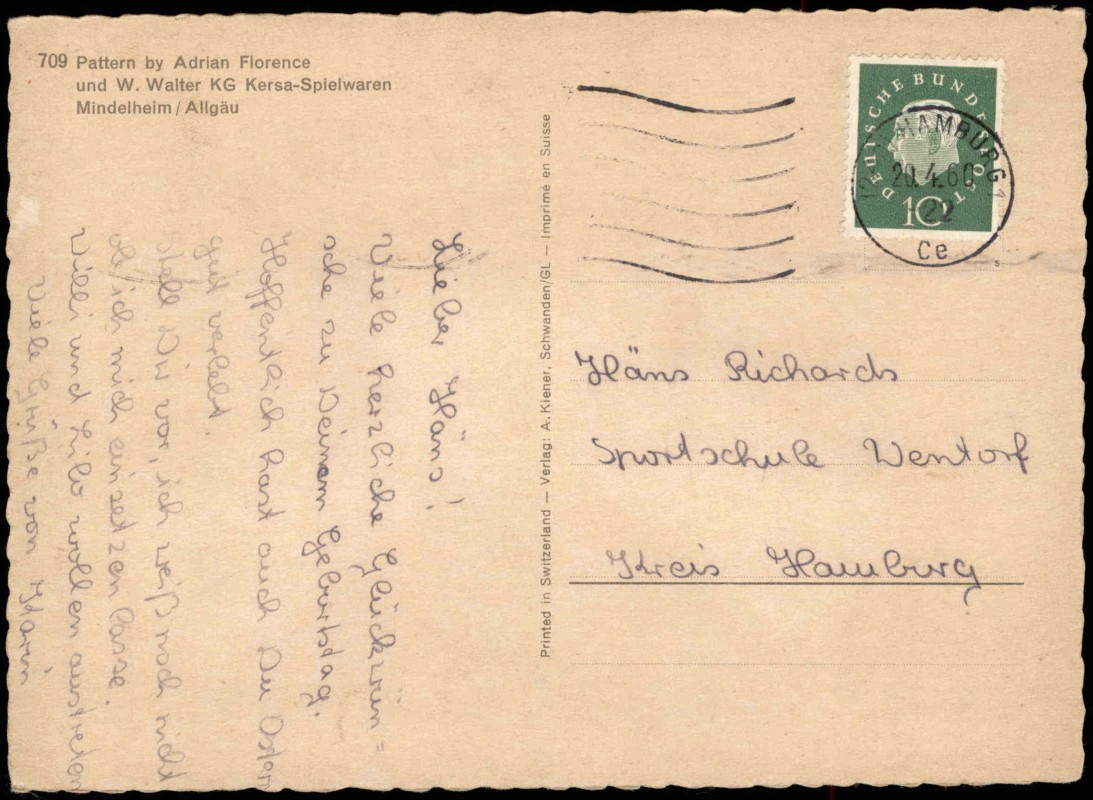 709 Pattern by Adrian Florence
und W. Walter KG Kersa-Spielwaren
Mindelheim/Allgäu
Lieber Häns!
Viele herzliche Glückwün=
sche zu Deinem Geburtstag.
Hoffentlich hast auch Du Ostern
gut verlebt.
Stell Dir vor, ich weiß noch nicht
ob ich mich einsetzen lasse.
Willi und Lilo wollen austreten
Viele Grüße von Karin
Printed in Switzerland — Verlag: A. Kiener, Schwanden/GL — Imprimé en Suisse
DEUTSCHE BUNDESPOST
10
HAMBURG 1
20.4.60
22
ce
Häns Richards
Sportschule Wentorf
Kreis Hamburg